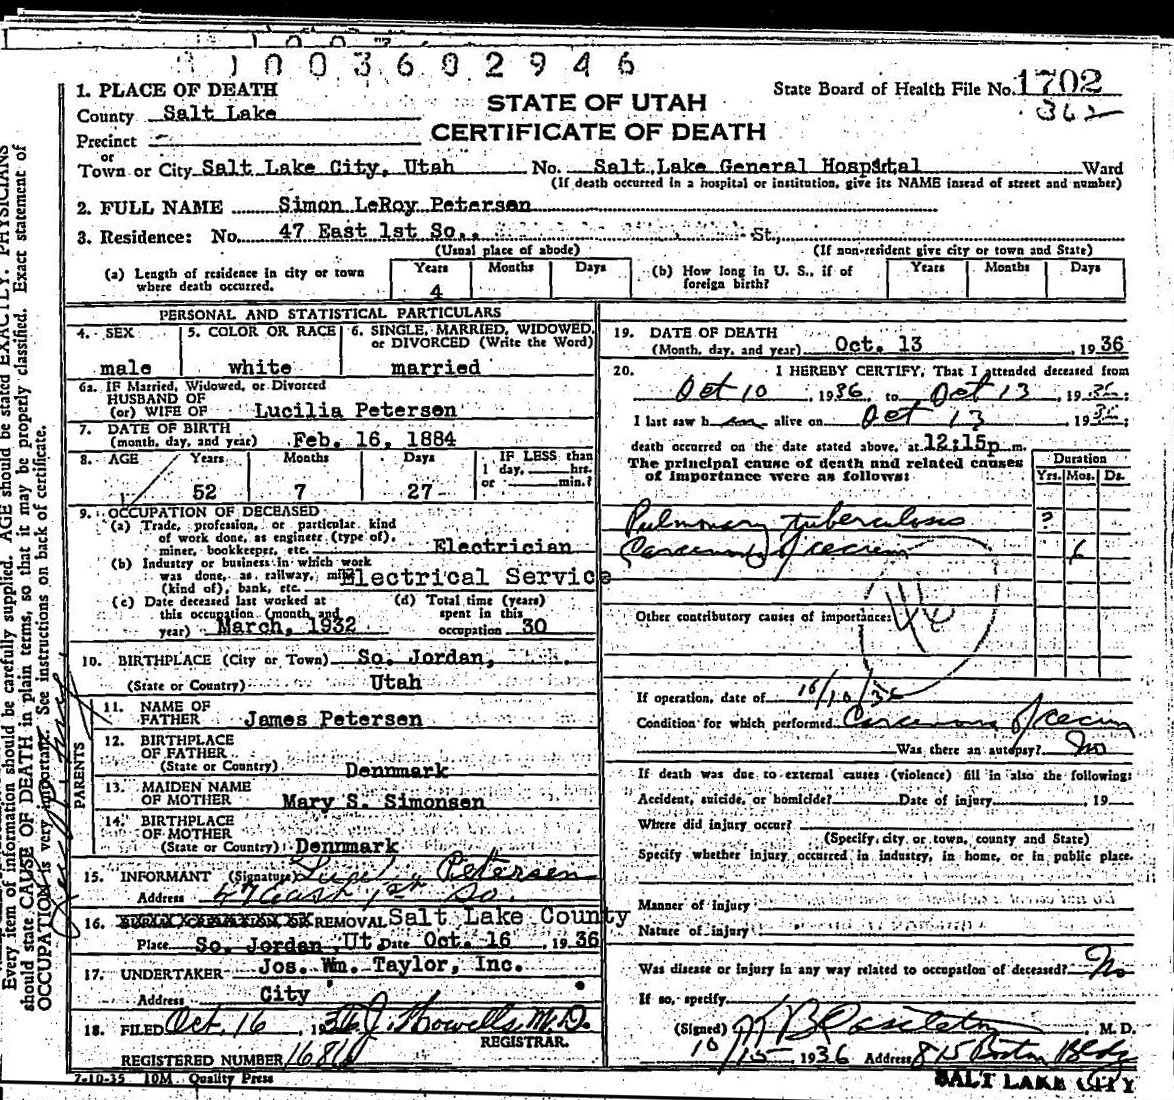 1003602946
1. PLACE OF DEATH
County Salt Lake
Precinct
or
Town or City Salt Lake City, Utah No. Salt Lake General Hospital Ward
STATE OF UTAH
CERTIFICATE OF DEATH
State Board of Health File No. 1702
362
(If death occurred in a hospital or institution, give its NAME instead of street and number)
2. FULL NAME Simon LeRoy Petersen
3. Residence: No. 47 East 1st So., St.,
(Usual place of abode) (If non-resident give city or town and State)
(a) Length of residence in city or town where death occurred. Years 4 Months Days
(b) How long in U. S., if of foreign birth? Years Months Days
PERSONAL AND STATISTICAL PARTICULARS
4. SEX male
5. COLOR OR RACE white
6. SINGLE, MARRIED, WIDOWED, or DIVORCED (Write the Word) married
6a. IF Married, Widowed, or Divorced
HUSBAND OF
(or) WIFE OF Lucilia Petersen
7. DATE OF BIRTH
(month, day, and year) Feb. 16, 1884
8. AGE Years 52 Months 7 Days 27
IF LESS than
1 day, hrs.
or min.?
9. OCCUPATION OF DECEASED
(a) Trade, profession, or particular kind
of work done, as engineer (type of),
miner, bookkeeper, etc. Electrician
(b) Industry or business in which work
was done, as railway, mine
(kind of), bank, etc. Electrical Service
(c) Date deceased last worked at
this occupation (month and
year) March, 1932
(d) Total time (years)
spent in this
occupation 30
10. BIRTHPLACE (City or Town) So. Jordan,
(State or Country) Utah
PARENTS
11. NAME OF
FATHER James Petersen
12. BIRTHPLACE
OF FATHER
(State or Country) Dennmark
13. MAIDEN NAME
OF MOTHER Mary S. Simonsen
14. BIRTHPLACE
OF MOTHER
(State or Country) Dennmark
15. INFORMANT (Signature) Petersen
Address 47 East 1st So.
16. BURIAL CREMATION OR REMOVAL Salt Lake County
Place So. Jordan Ut. Date Oct. 16, 1936
17. UNDERTAKER Jos. Wm. Taylor, Inc.
Address City
18. FILED Oct. 16, 1936 J. Howells, M.D.
REGISTRAR.
REGISTERED NUMBER
7-10-35 10M Quality Press
19. DATE OF DEATH
(Month, day, and year) Oct. 13, 1936
20. I HEREBY CERTIFY, That I attended deceased from
Oct 10, 1936, to Oct 13, 1936;
I last saw him alive on Oct 13, 1936;
death occurred on the date stated above, at 12:15p m.
The principal cause of death and related causes
of importance were as follows:
Duration
Yrs. Mos. Ds.
Pulmonary tuberculosis ?
Carcinoma of cecum 6
Other contributory causes of importance:
If operation, date of 10/10/36
Condition for which performed Carcinoma of cecum
Was there an autopsy? No
If death was due to external causes (violence) fill in also the following:
Accident, suicide, or homicide? Date of injury, 19
Where did injury occur?
(Specify city or town, county and State)
Specify whether injury occurred in industry, in home, or in public place.
Manner of injury
Nature of injury
Was disease or injury in any way related to occupation of deceased? No
If so, specify
(Signed) M. D.
10/15 1936 Address 815 Boston Bldg
SALT LAKE CITY
Every item of information should be carefully supplied. AGE should be stated EXACTLY. PHYSICIANS
should state CAUSE OF DEATH in plain terms, so that it may be properly classified. Exact statement of
OCCUPATION is very important. See instructions on back of certificate.